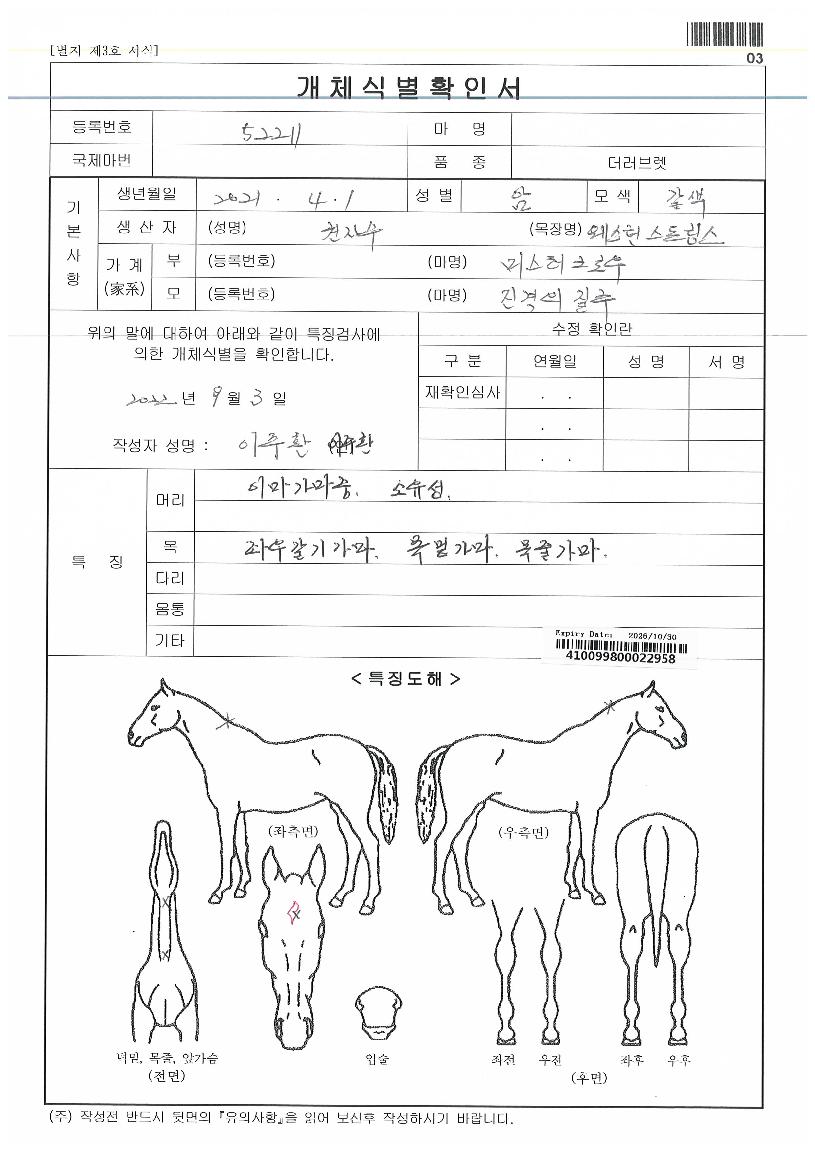 [별지 제3호 서식]
03
개체식별확인서
등록번호 52211 마 명
국제마번 품 종 더러브렛
기본사항
생년월일 2021 . 4 . 1 성 별 암 모 색 갈색
생 산 자 (성명) 천지수 (목장명) 웨스턴 스트링스
가 계 (家系)
부 (등록번호) (마명) 미스터크로우
모 (등록번호) (마명) 진격의 질주
위의 말에 대하여 아래와 같이 특징검사에
의한 개체식별을 확인합니다.
2022 년 9 월 3 일
작성자 성명 : 이주환
수정 확인란
구 분 연월일 성 명 서 명
재확인심사 . .
. .
. .
특 징
머리 이마가마중. 소유성.
목 좌우갈기가마. 목멈가마. 목줄가마.
다리
몸통
기타
Expiry Date: 2026/10/30
410099800022958
< 특징도해 >
(좌측면) (우측면)
턱밑, 목줄, 앞가슴
(전면)
입술
좌전 우전 좌후 우후
(후면)
(주) 작성전 반드시 뒷면의 『유의사항』을 읽어 보신후 작성하시기 바랍니다.